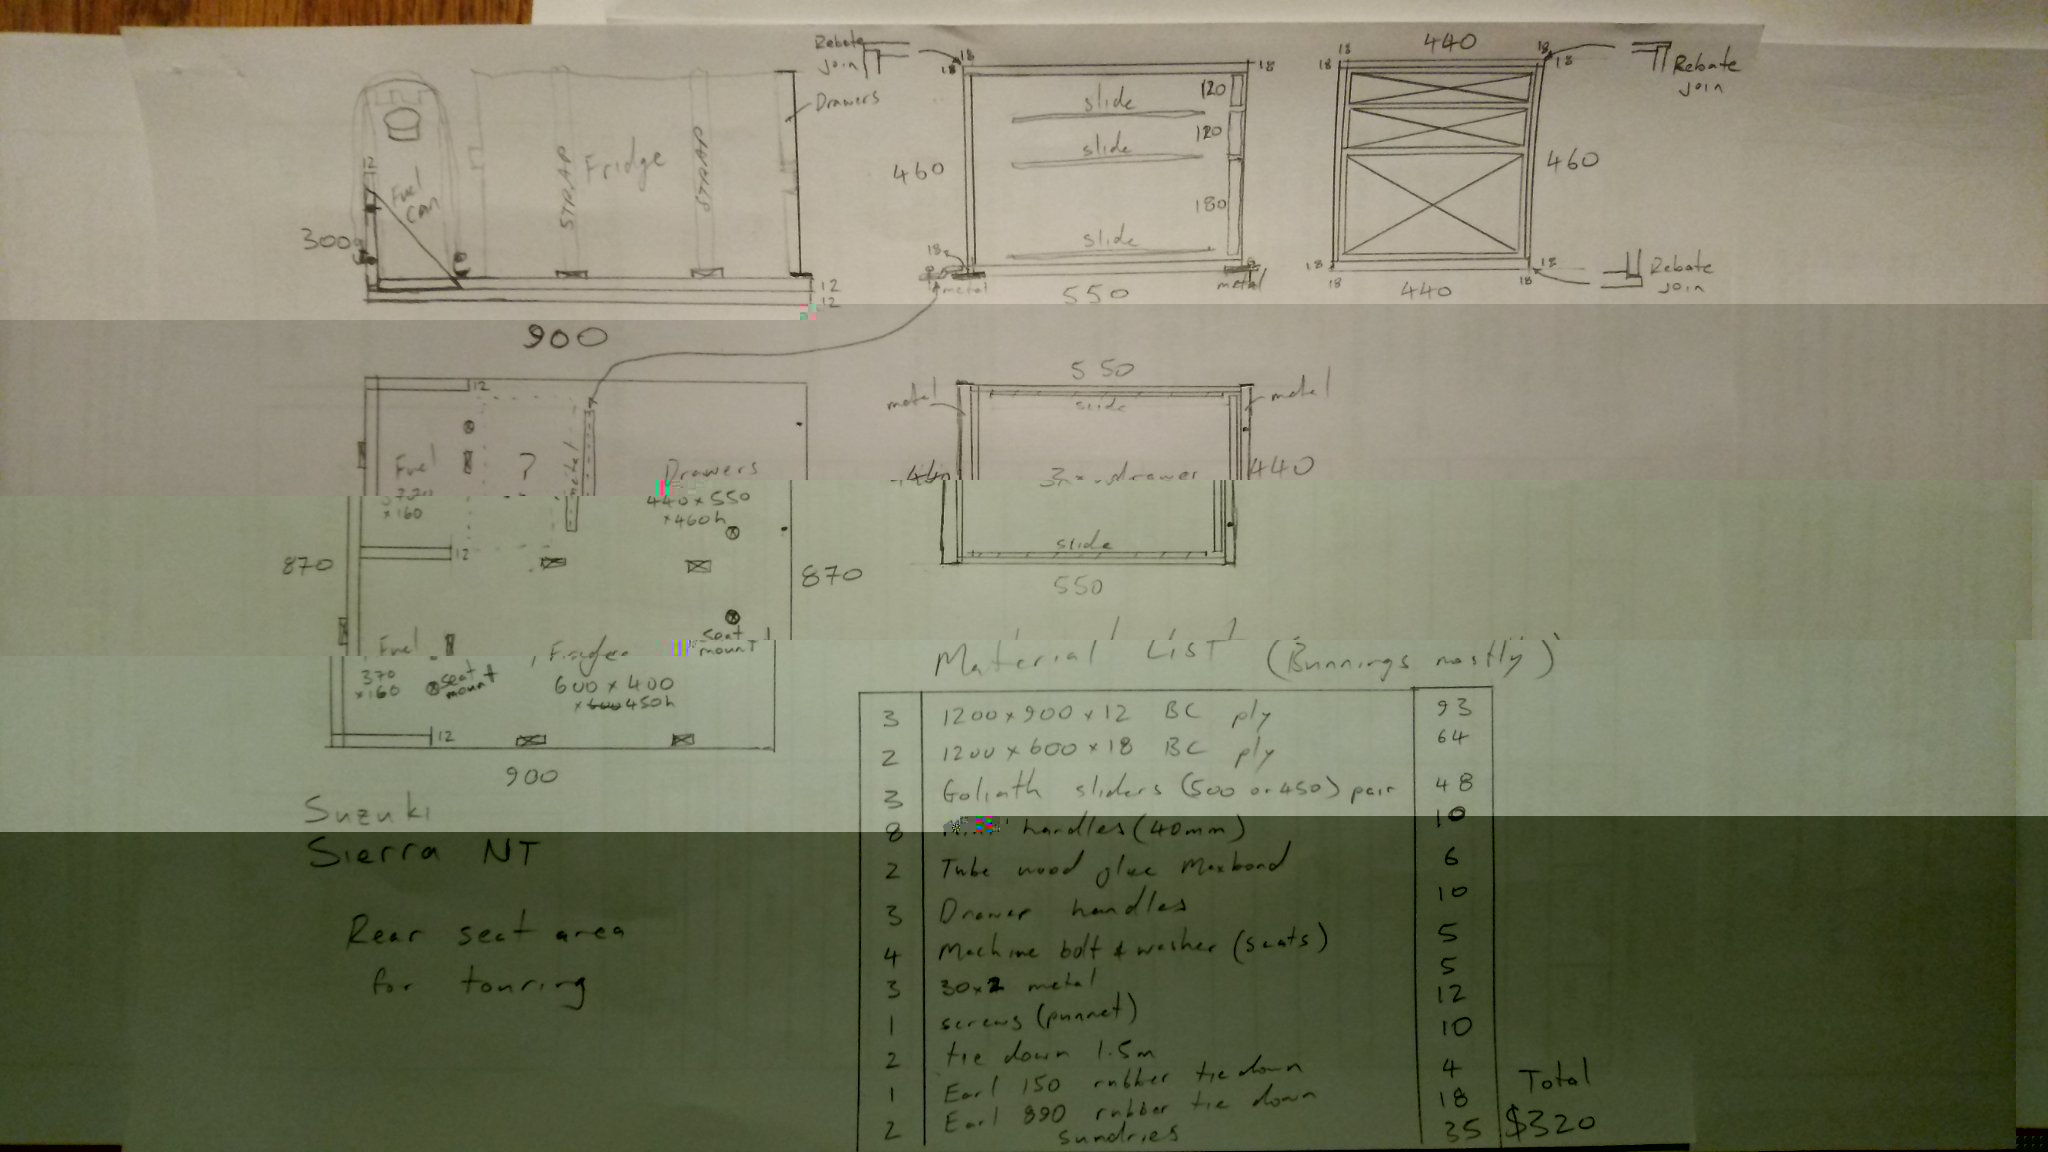 Rebate
join
18
18
18
120
slide
120
slide
460
180
slide
18
metal
metal
550
18
440
18
18
18
Rebate
join
460
18
18
18
18
440
Rebate
join
Drawers
12
Fuel
can
STRAP
Fridge
STRAP
300
12
12
900
12
metal
Fuel
?
Drawers
440 x 550
x 460h
x160
12
870
870
Fuel
370
x160
seat
mount
seat
mount
600 x 400
x 600 450h
12
900
550
metal
metal
slide
440
drawer
slide
550
Suzuki
Sierra NT
Rear seat area
for touring
Material List (Bunnings mostly)
3 1200 x 900 x 12 BC ply 93
2 1200 x 600 x 18 BC ply 64
3 Goliath sliders (500 or 450) pair 48
8 handles (40mm) 10
2 Tube wood glue Maxbond 6
3 Drawer handles 10
4 Machine bolt & washer (seats) 5
3 30x2 metal 5
1 screws (punnet) 12
2 tie down 1.5m 10
1 Earl 150 rubber tie down 4
2 Earl 890 rubber tie down 18
sundries 35
Total
$320